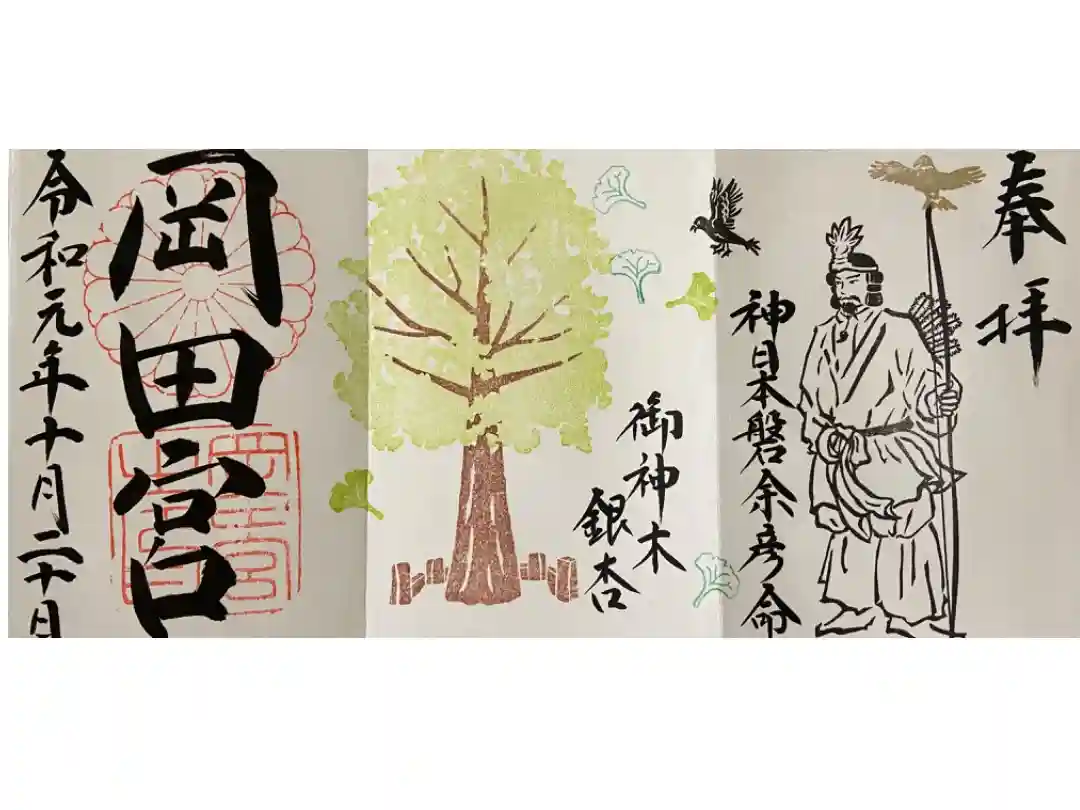 奉拝
神日本磐余彦命
御神木
銀杏
岡田宮
令和元年十月二十日